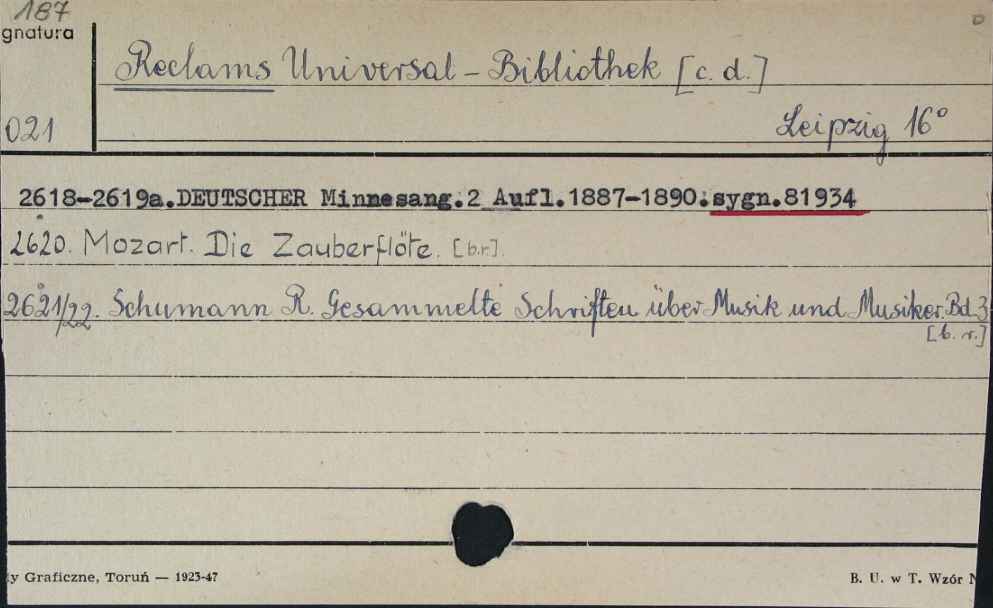 187
gnatura
Reclams Universal - Bibliothek [c. d.]
021
Leipzig 16°
2618-2619a.DEUTSCHER Minnesang.2 Aufl.1887-1890.sygn.81934
2620. Mozart. Die Zauberflöte. [b.r].
2621/22. Schumann R. Gesammelte Schriften über Musik und Musiker. Bd. 3
[b. r.]
y Graficzne, Toruń — 1923-47
B. U. w T. Wzór N